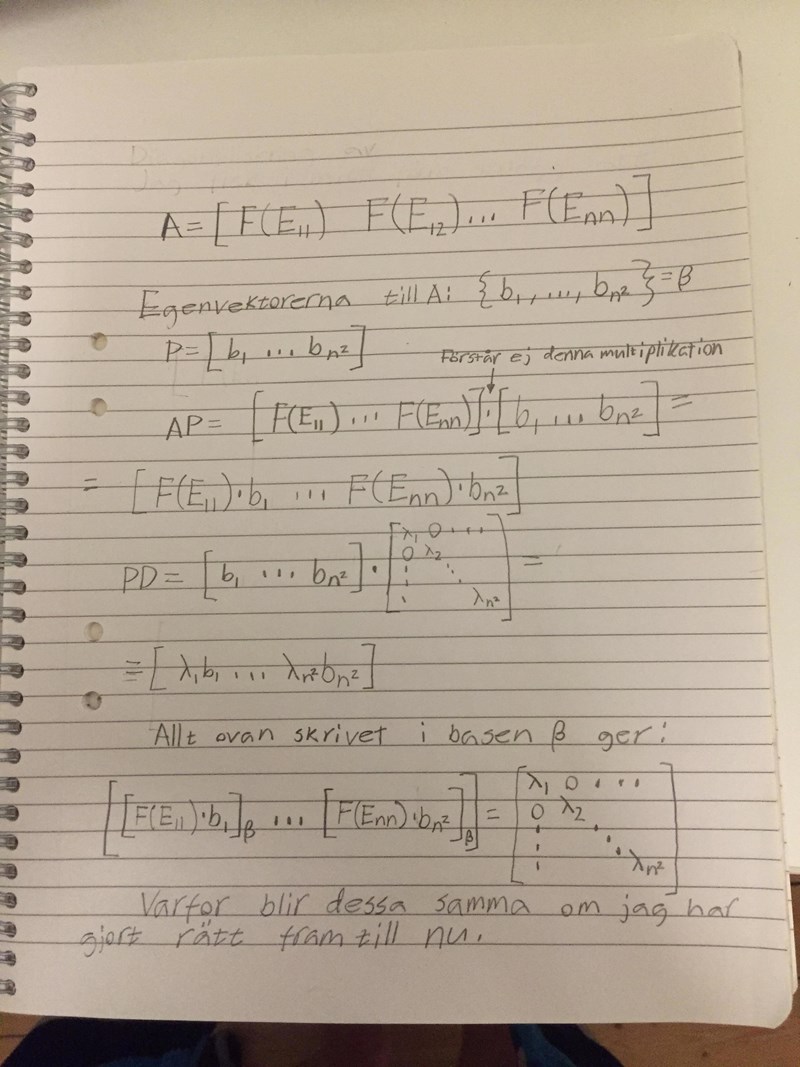 A = [ F(E₁₁) F(E₁₂)... F(Eₙₙ) ]
Egenvektorerna till A: {b₁, ..., bₙ²} = β
P = [ b₁ ... bₙ² ]
Förstår ej denna multiplikation
AP = [ F(E₁₁) ... F(Eₙₙ) ] · [ b₁ ... bₙ² ] =
= [ F(E₁₁)·b₁ ... F(Eₙₙ)·bₙ² ]
PD = [ b₁ ... bₙ² ] · [ λ₁ 0 ...
0 λ₂
⋮ ⋱
λₙ² ] =
= [ λ₁b₁ ... λₙ²bₙ² ]
Allt ovan skrivet i basen β ger:
[ [F(E₁₁)·b₁]β ... [F(Eₙₙ)·bₙ²]β ] = [ λ₁ 0 ...
0 λ₂
⋮ ⋱
λₙ² ]
Varför blir dessa samma om jag har
gjort rätt fram till nu.